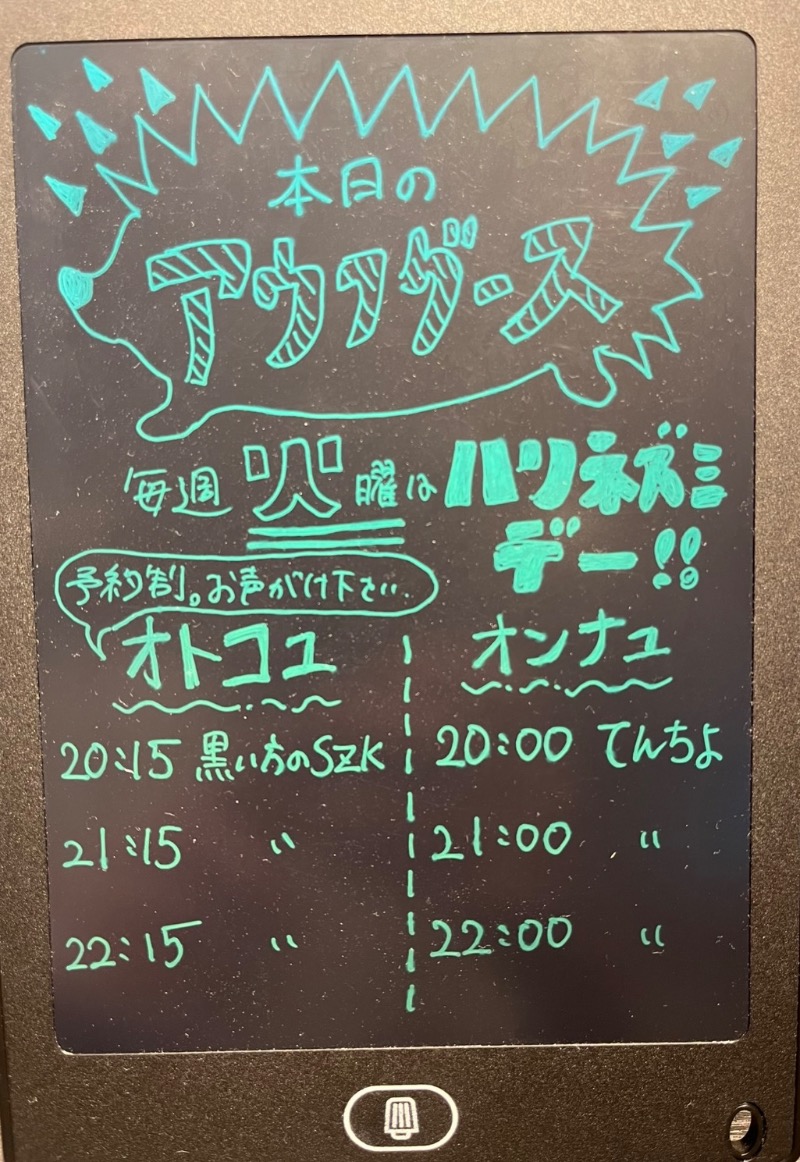 本日の
アウフグース
毎週火曜はハリネズミ
デー!!
予約割。お声がけ下さい..
オトコユ
20:15 黒い方のSZK
21:15 〃
22:15 〃
オンナユ
20:00 てんちょ
21:00 〃
22:00 〃